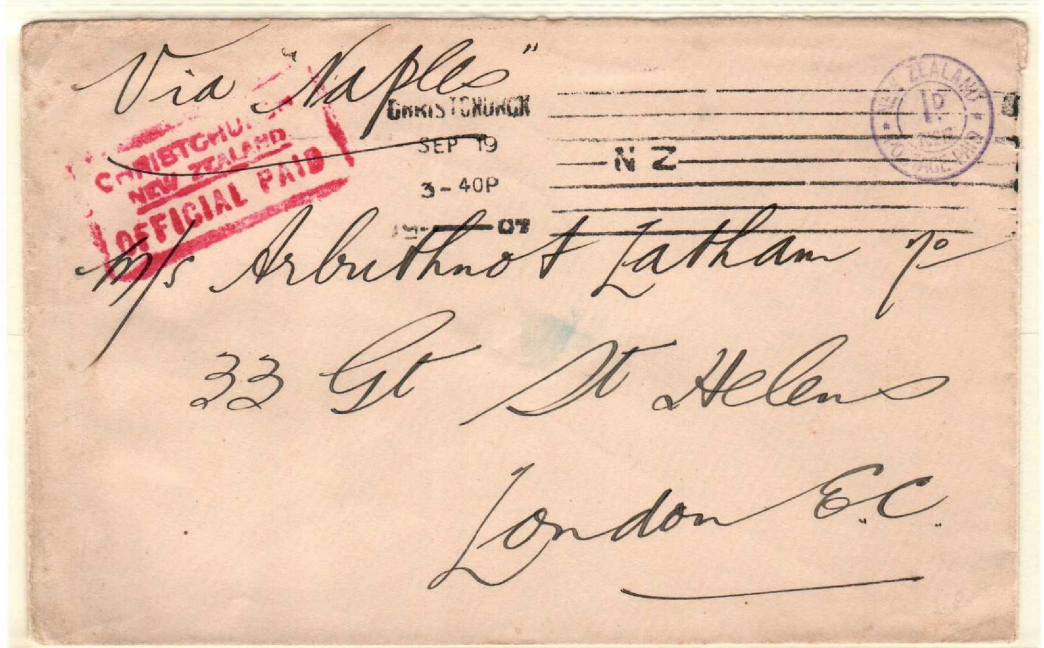 Via "Naples"
CHRISTCHURCH
NEW ZEALAND
OFFICIAL PAID
CHRISTCHURCH
SEP 19
3-40P
07
N Z
NEW ZEALAND
1D
POSTAGE PAID
M/s Arbuthnot Latham
33 Gt St Helens
London E.C.